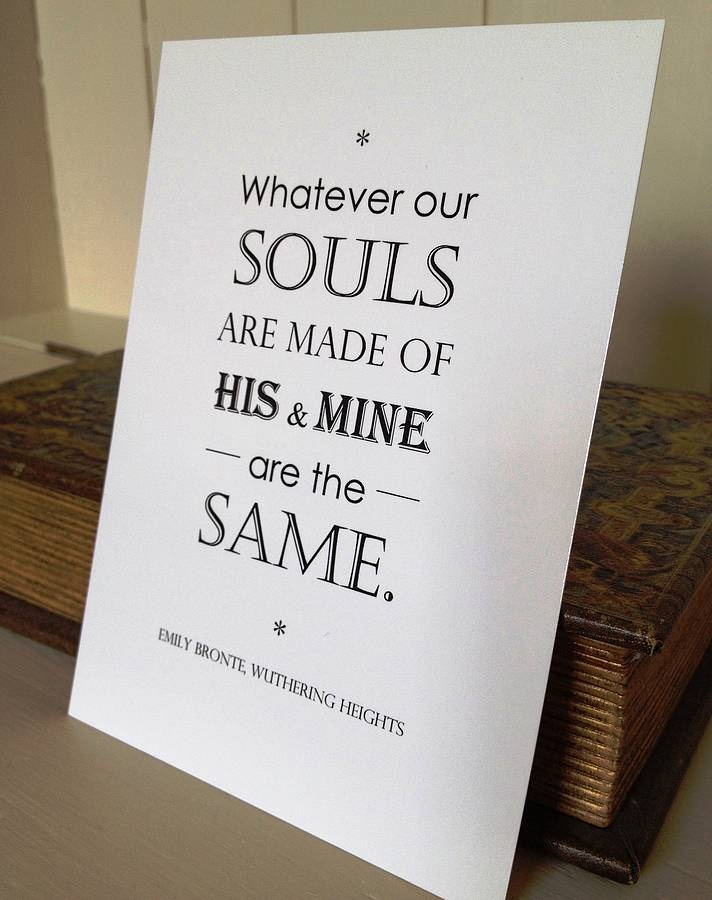 *
Whatever our
SOULS
ARE MADE OF
HIS & MINE
— are the —
SAME.
*
EMILY BRONTE, WUTHERING HEIGHTS